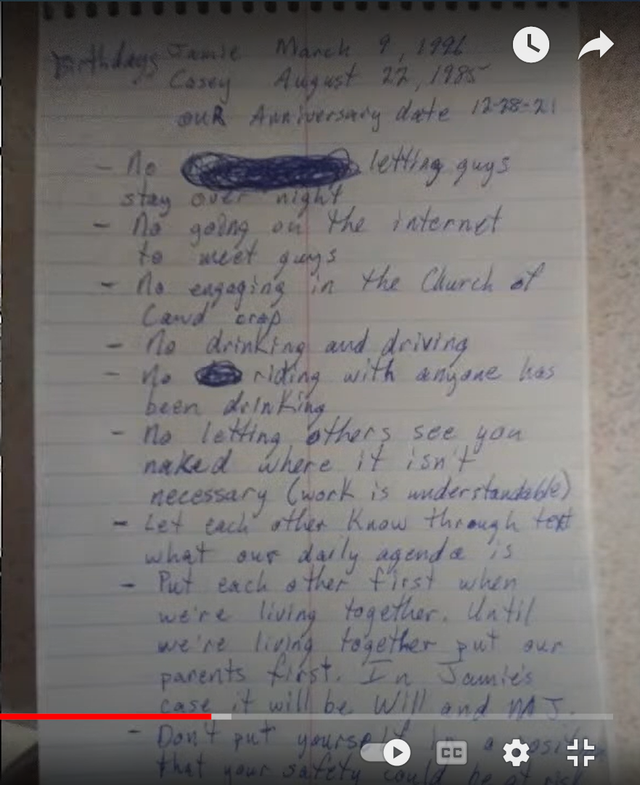 Birthdays Jamie March 9, 1996
Casey August 22, 1985
OUR Anniversary date 12-28-21
- No letting guys
stay over night
- No going on the internet
to meet guys
- No engaging in the Church of
Cawd crap
- No drinking and driving
- No riding with anyone has
been drinking
- No letting others see you
naked where it isn't
necessary (work is understandable)
- Let each other Know through text
what our daily agenda is
- Put each other first when
we're living together. Until
we're living together put our
parents first. In Jamie's
case it will be Will and MJ.
- Don't put yourself in a
that your safety could be at risk
CC